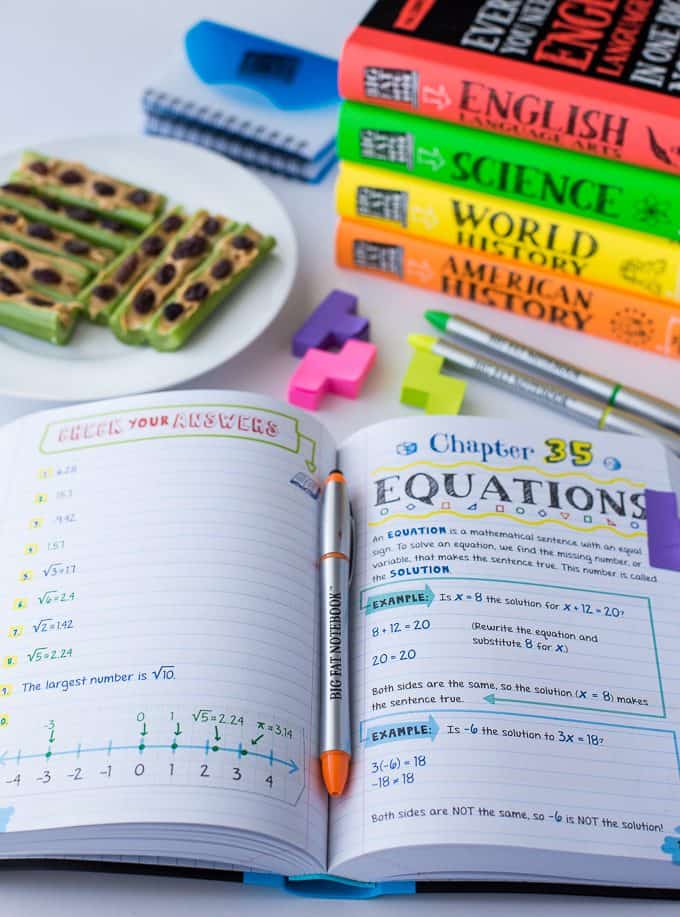 EVERY
YOU NEE
ENG
LANGUAGE
IN ONE B
BIG FAT
ENGLISH
LANGUAGE ARTS
BIG FAT
SCIENCE
BIG FAT
WORLD
HISTORY
BIG FAT
AMERICAN
HISTORY
BIG FAT NOTEBOOK
BIG FAT NOTEBOOK
CHECK YOUR ANSWERS
1. 6.28
2.
3. -9.42
4. 1.57
5. √3≈1.7
6. √6≈2.4
7. √2≈1.42
8. √5≈2.24
9. The largest number is √10.
0.
-3 0 1 √5≈2.24 π≈3.14
-4 -3 -2 -1 0 1 2 3 4
BIG FAT NOTEBOOK™
Chapter 35
EQUATIONS
An EQUATION is a mathematical sentence with an equal
sign. To solve an equation, we find the missing number, or
variable, that makes the sentence true. This number is called
the SOLUTION.
EXAMPLE: Is x = 8 the solution for x + 12 = 20?
8 + 12 = 20 (Rewrite the equation and
substitute 8 for x.)
20 = 20
Both sides are the same, so the solution (x = 8) makes
the sentence true.
EXAMPLE: Is -6 the solution to 3x = 18?
3(-6) = 18
-18 ≠ 18
Both sides are NOT the same, so -6 is NOT the solution!